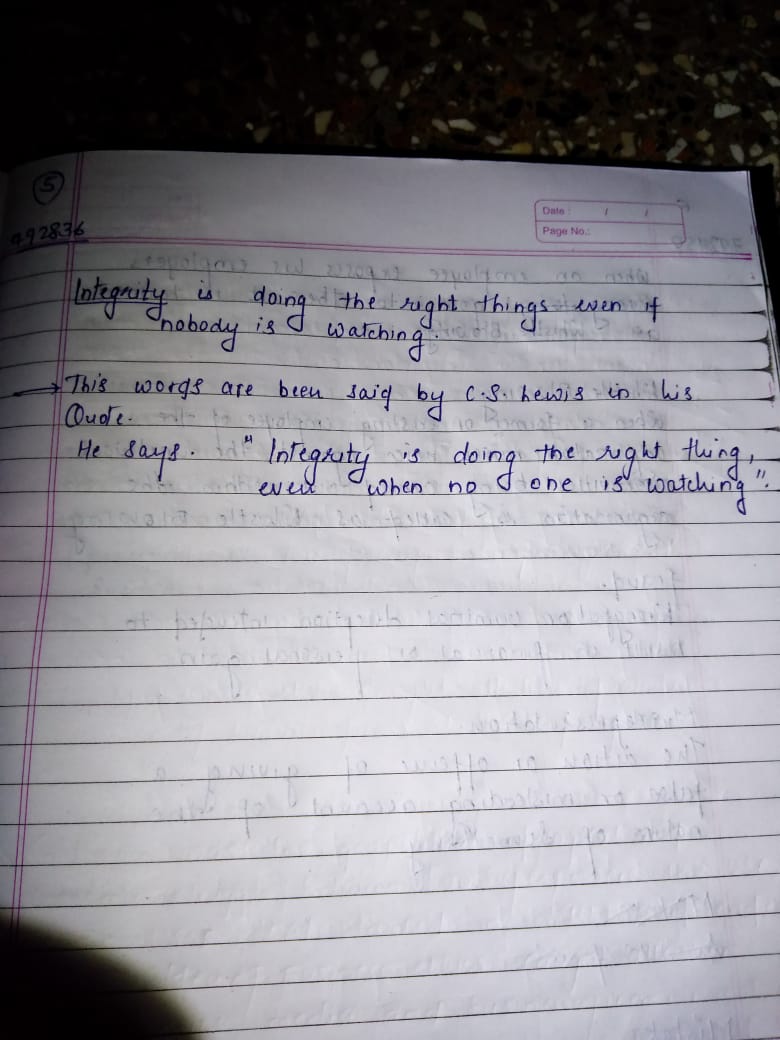 5
Date : / /
Page No.:
492836
Integrity is doing the right things even if
nobody is watching.
→ This words are been said by C.S. Lewis in his
Quote.
He says. " Integrity is doing the right thing,
even when no one is watching".